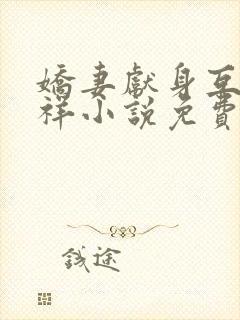 嬌妻獻身互
祥小說免費
錢途